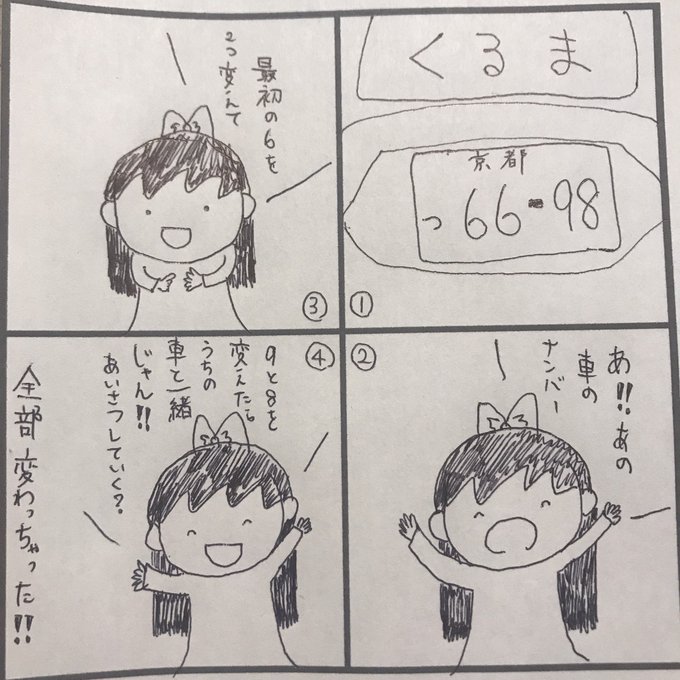 くるま
京都
っ 66-98
①
②
あ!!あの
車の
ナンバー
最初の6を
2つ変えて
③
④
9と8を
変えたら
うちの
車と一緒
じゃん!!
あいさつしていく?
全部変わっちゃった!!